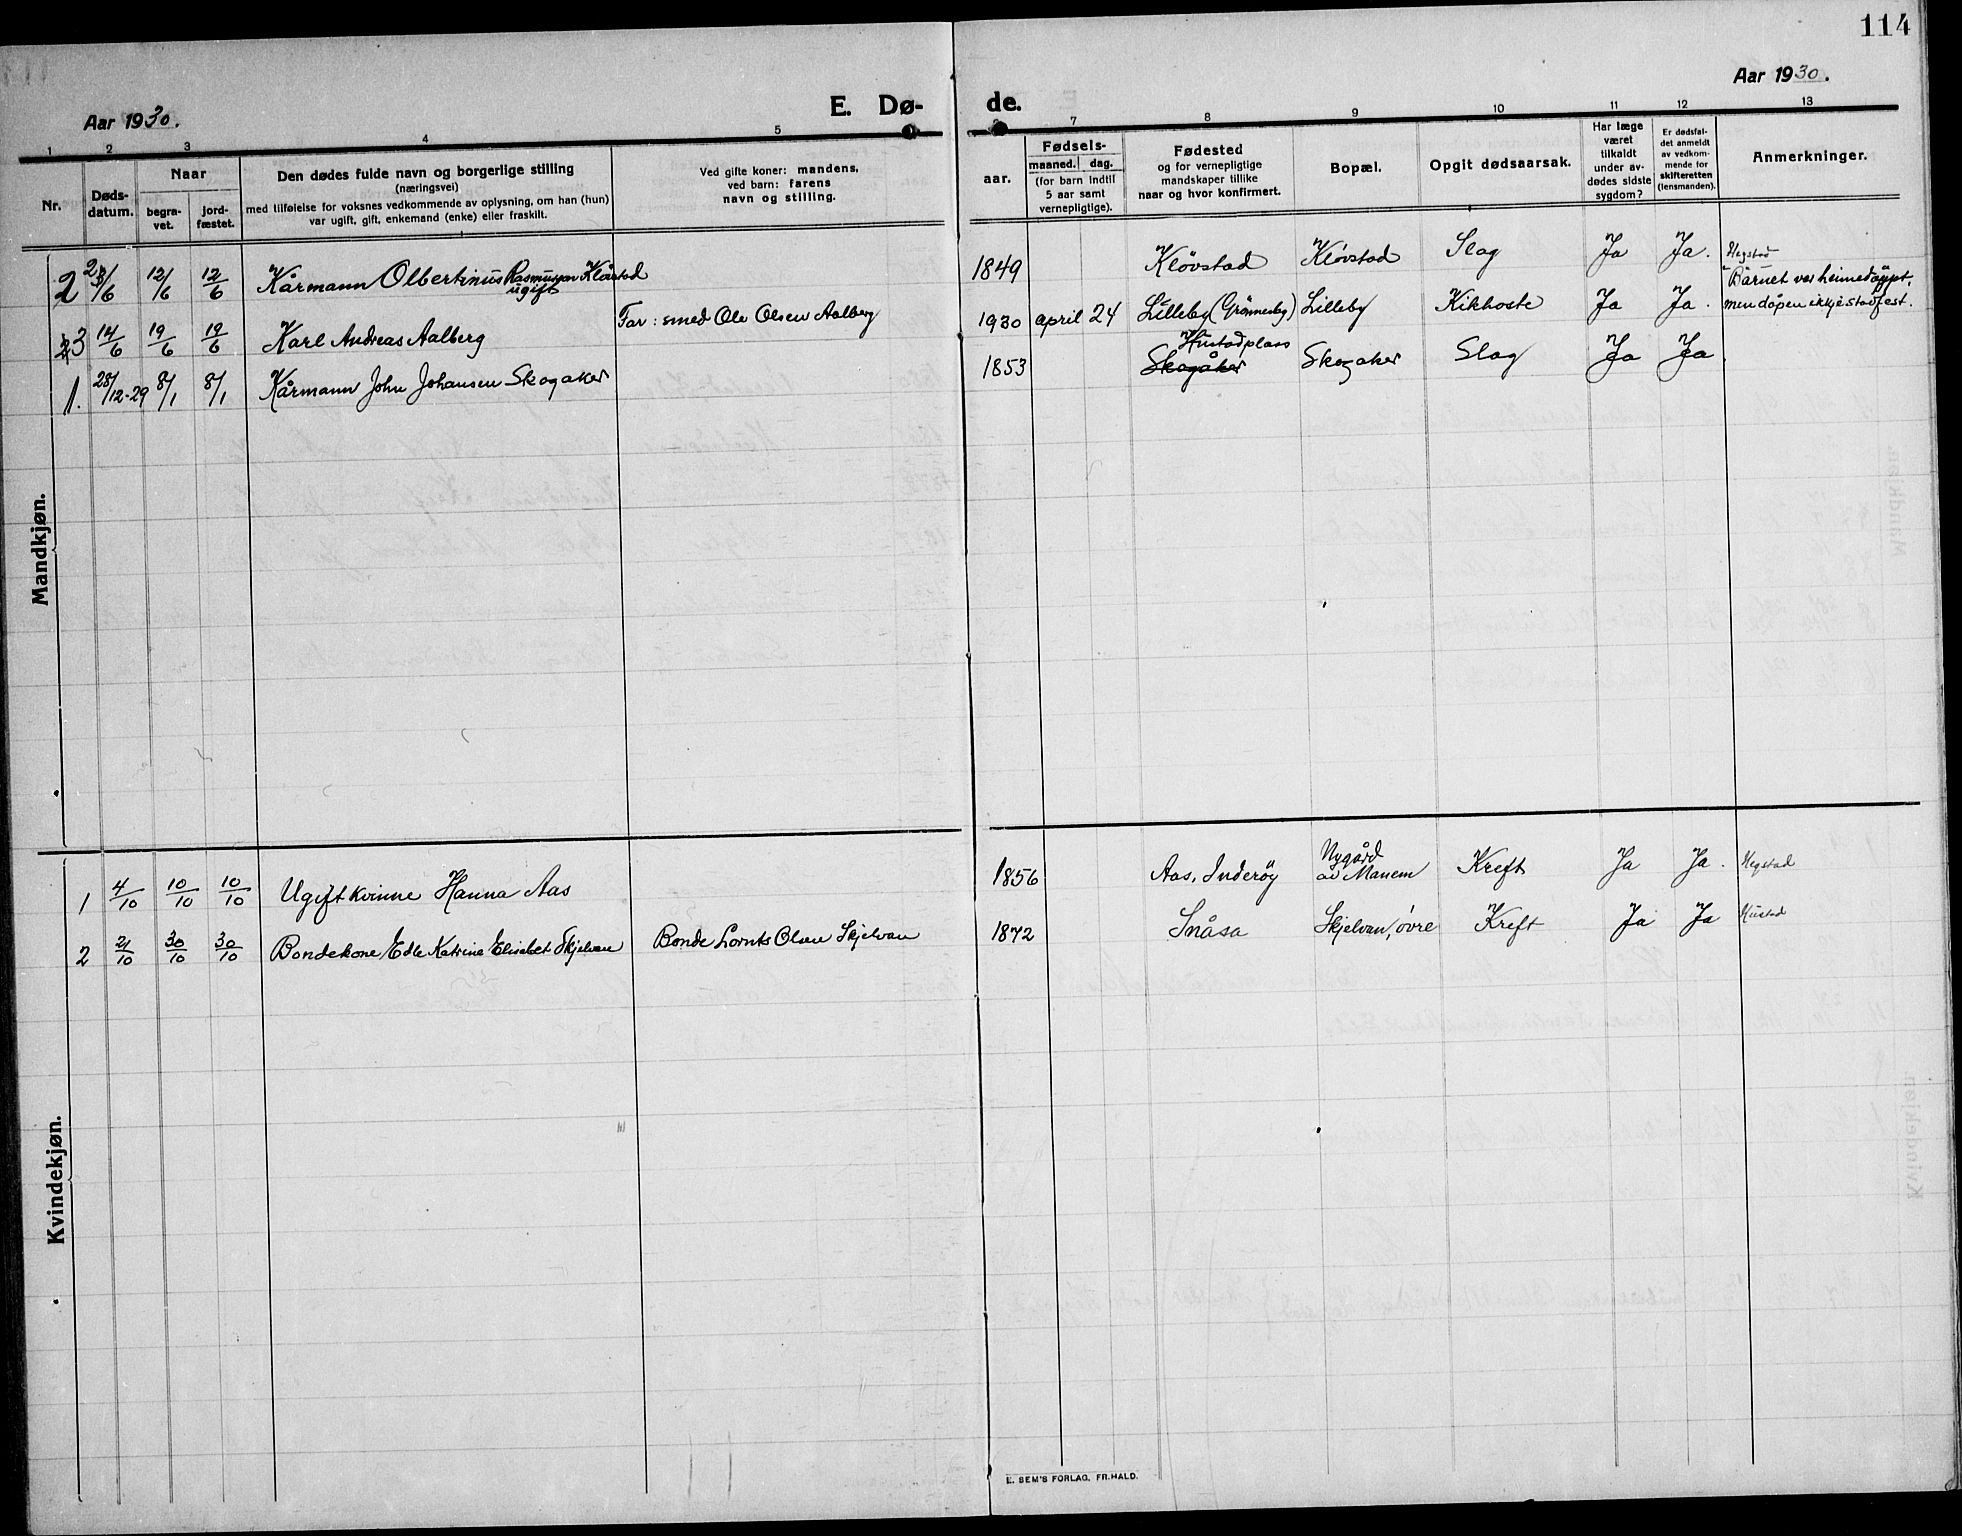 114
Aar 1930.
Aar 1930.
E. Dø-
de.
1 2 3 4 5
7 8 9 10 11 12 13
Nr.
Døds-
datum.
Naar
begra-
vet.
jord-
fæstet.
Den dødes fulde navn og borgerlige stilling
(næringsvei)
med tilføielse for voksnes vedkommende av oplysning, om han (hun)
var ugift, gift, enkemand (enke) eller fraskilt.
Ved gifte koner: mandens,
ved barn: farens
navn og stilling.
aar.
Fødsels-
maaned. dag.
(for barn indtil
5 aar samt
vernepligtige).
Fødested
og for vernepligtige
mandskaper tillike
naar og hvor konfirmert.
Bopæl.
Opgit dødsaarsak.
Har læge
været
tilkaldt
under av-
dødes sidste
sygdom?
Er dødsfal-
det anmeldt
av vedkom-
mende for
skifteretten
(lensmanden).
Anmerkninger.
Mandkjøn.
2 /6 12/6 12/6 Kårmann Olbertinus Rasmussen Kløvstad
ugift
1849 Kløvstad Kløvstad Slag Ja Ja. Hegstad
3 14/6 19/6 19/6 Karl Andreas Aalberg Far: smed Ole Olsen Aalberg
1930 april 24 Lilleby (Grønnesby) Lilleby Kikhoste Ja Ja. Barnet var heimedøypt,
men dåpen ikkje stadfest.
1. 28/12-29 8/1 8/1 Kårmann John Johansen Skogaker
Hustadplass
1853 Skogåker Skogaker Slag Ja Ja
Kvindekjøn.
1 4/10 10/10 10/10 Ugift kvinne Hanna Aas
1856 Aas, Inderøy Nygård
av Manem Kreft Ja Ja. Hegstad
2 21/10 30/10 30/10 Bondekone Edle Katrine Elisabet Skjelvan Bonde Lornts Olsen Skjelvan
1872 Snåsa Skjelvan, øvre Kreft Ja Ja Hustad
E. SEM'S FORLAG, FR.HALD.